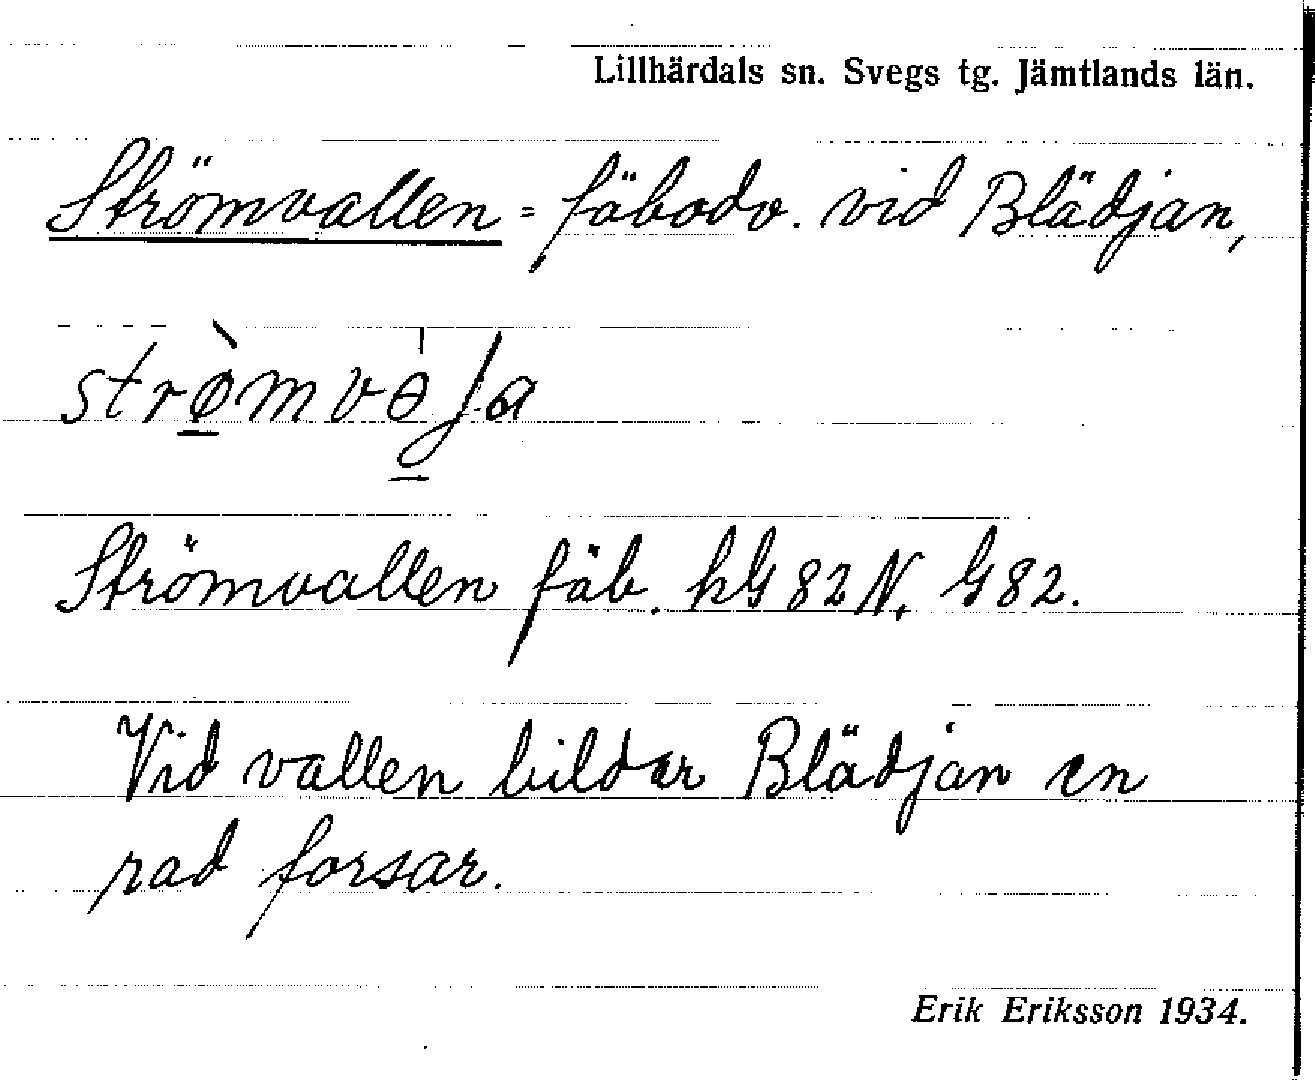 Lillhärdals sn. Svegs tg. Jämtlands län.
Strömvallen = fäbodv. vid Blädjan,
Strömvallen fäb. hG 82 N. G 82.
Vid vallen bildar Blädjan en
rad forsar.
Erik Eriksson 1934.